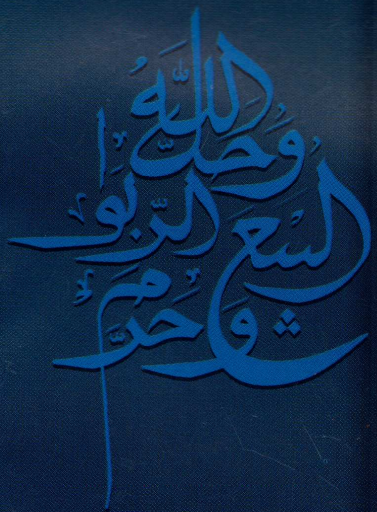 وأحل الله
البيع
وحرم
الربوا